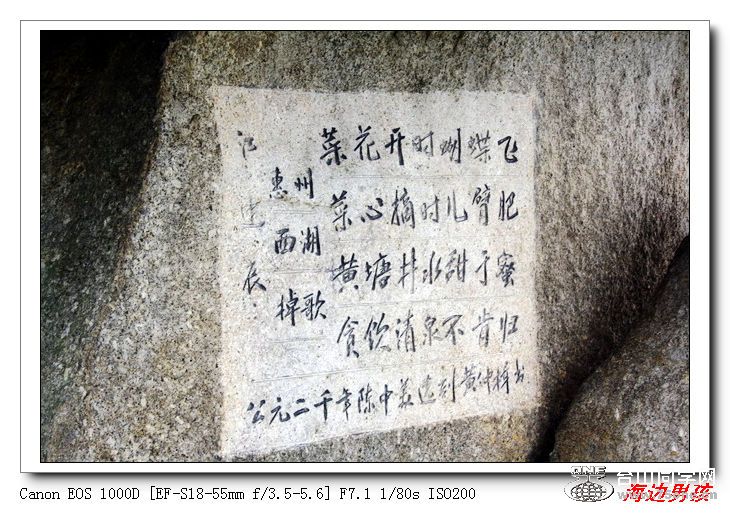 菜花开时蝴蝶飞
菜心摘时儿臂肥
黄塘井水甜于蜜
贪饮清泉不肯归
惠州
西湖
棹歌
江逢辰
公元二千年陈中美选刻黄仲楫书
Canon EOS 1000D [EF-S18-55mm f/3.5-5.6] F7.1 1/80s ISO200
ONE
台山同学网
海边男孩